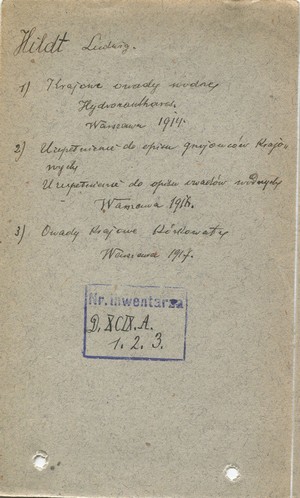 Hildt Ludwig.
1) Krajowe owady wodne
Hydrocanthares.
Warszawa 1914.
2) Uzupełnienie do opisu gnojowców krajo-
wych
Uzupełnienie do opisu owadów wodnych
Warszawa 1916.
3) Owady krajowe
Warszawa 1917.
Nr. inwentarza
D. XCIX. A.
1. 2. 3.